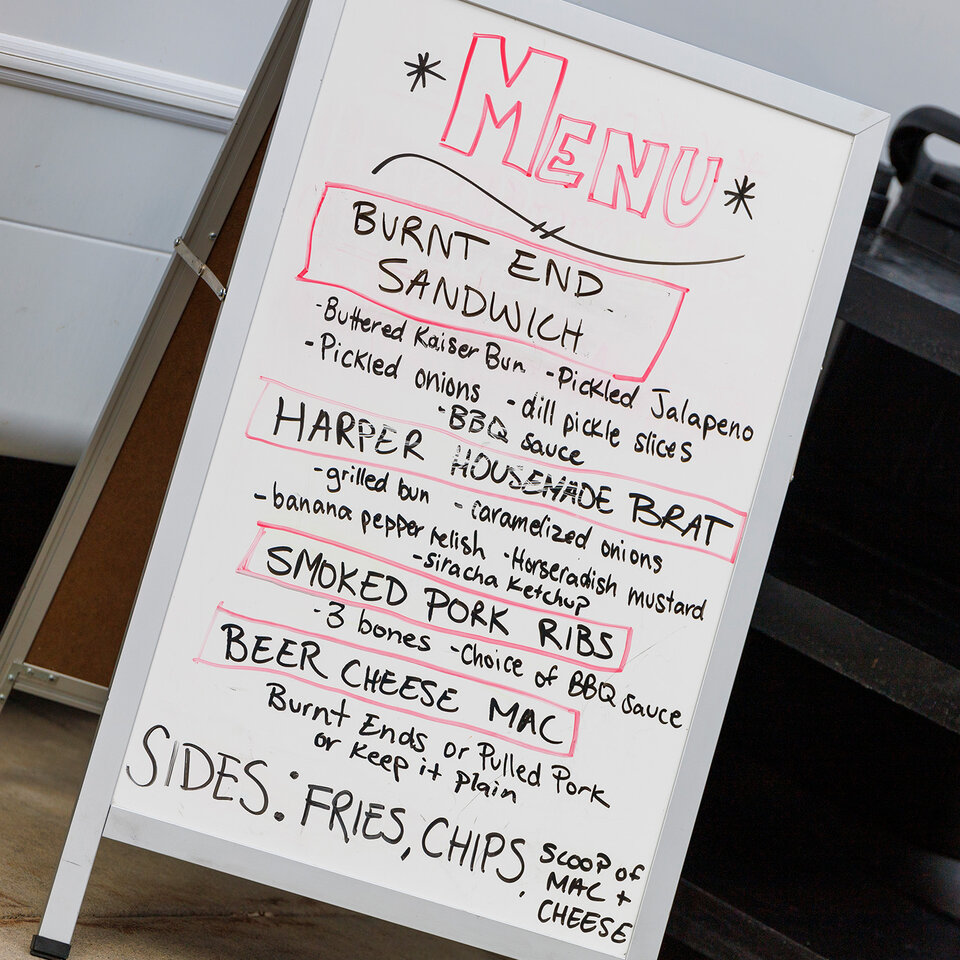 * MENU *
BURNT END
SANDWICH
-Buttered Kaiser Bun -Pickled Jalapeno
-Pickled onions -dill pickle slices
-BBQ sauce
HARPER HOUSEMADE BRAT
-grilled bun - caramelized onions
-banana pepper relish -Horseradish mustard
-siracha Ketchup
SMOKED PORK RIBS
-3 bones -Choice of BBQ sauce
BEER CHEESE MAC
Burnt Ends or Pulled Pork
or Keep it plain
SIDES: FRIES, CHIPS,
SCOOP of
MAC +
CHEESE